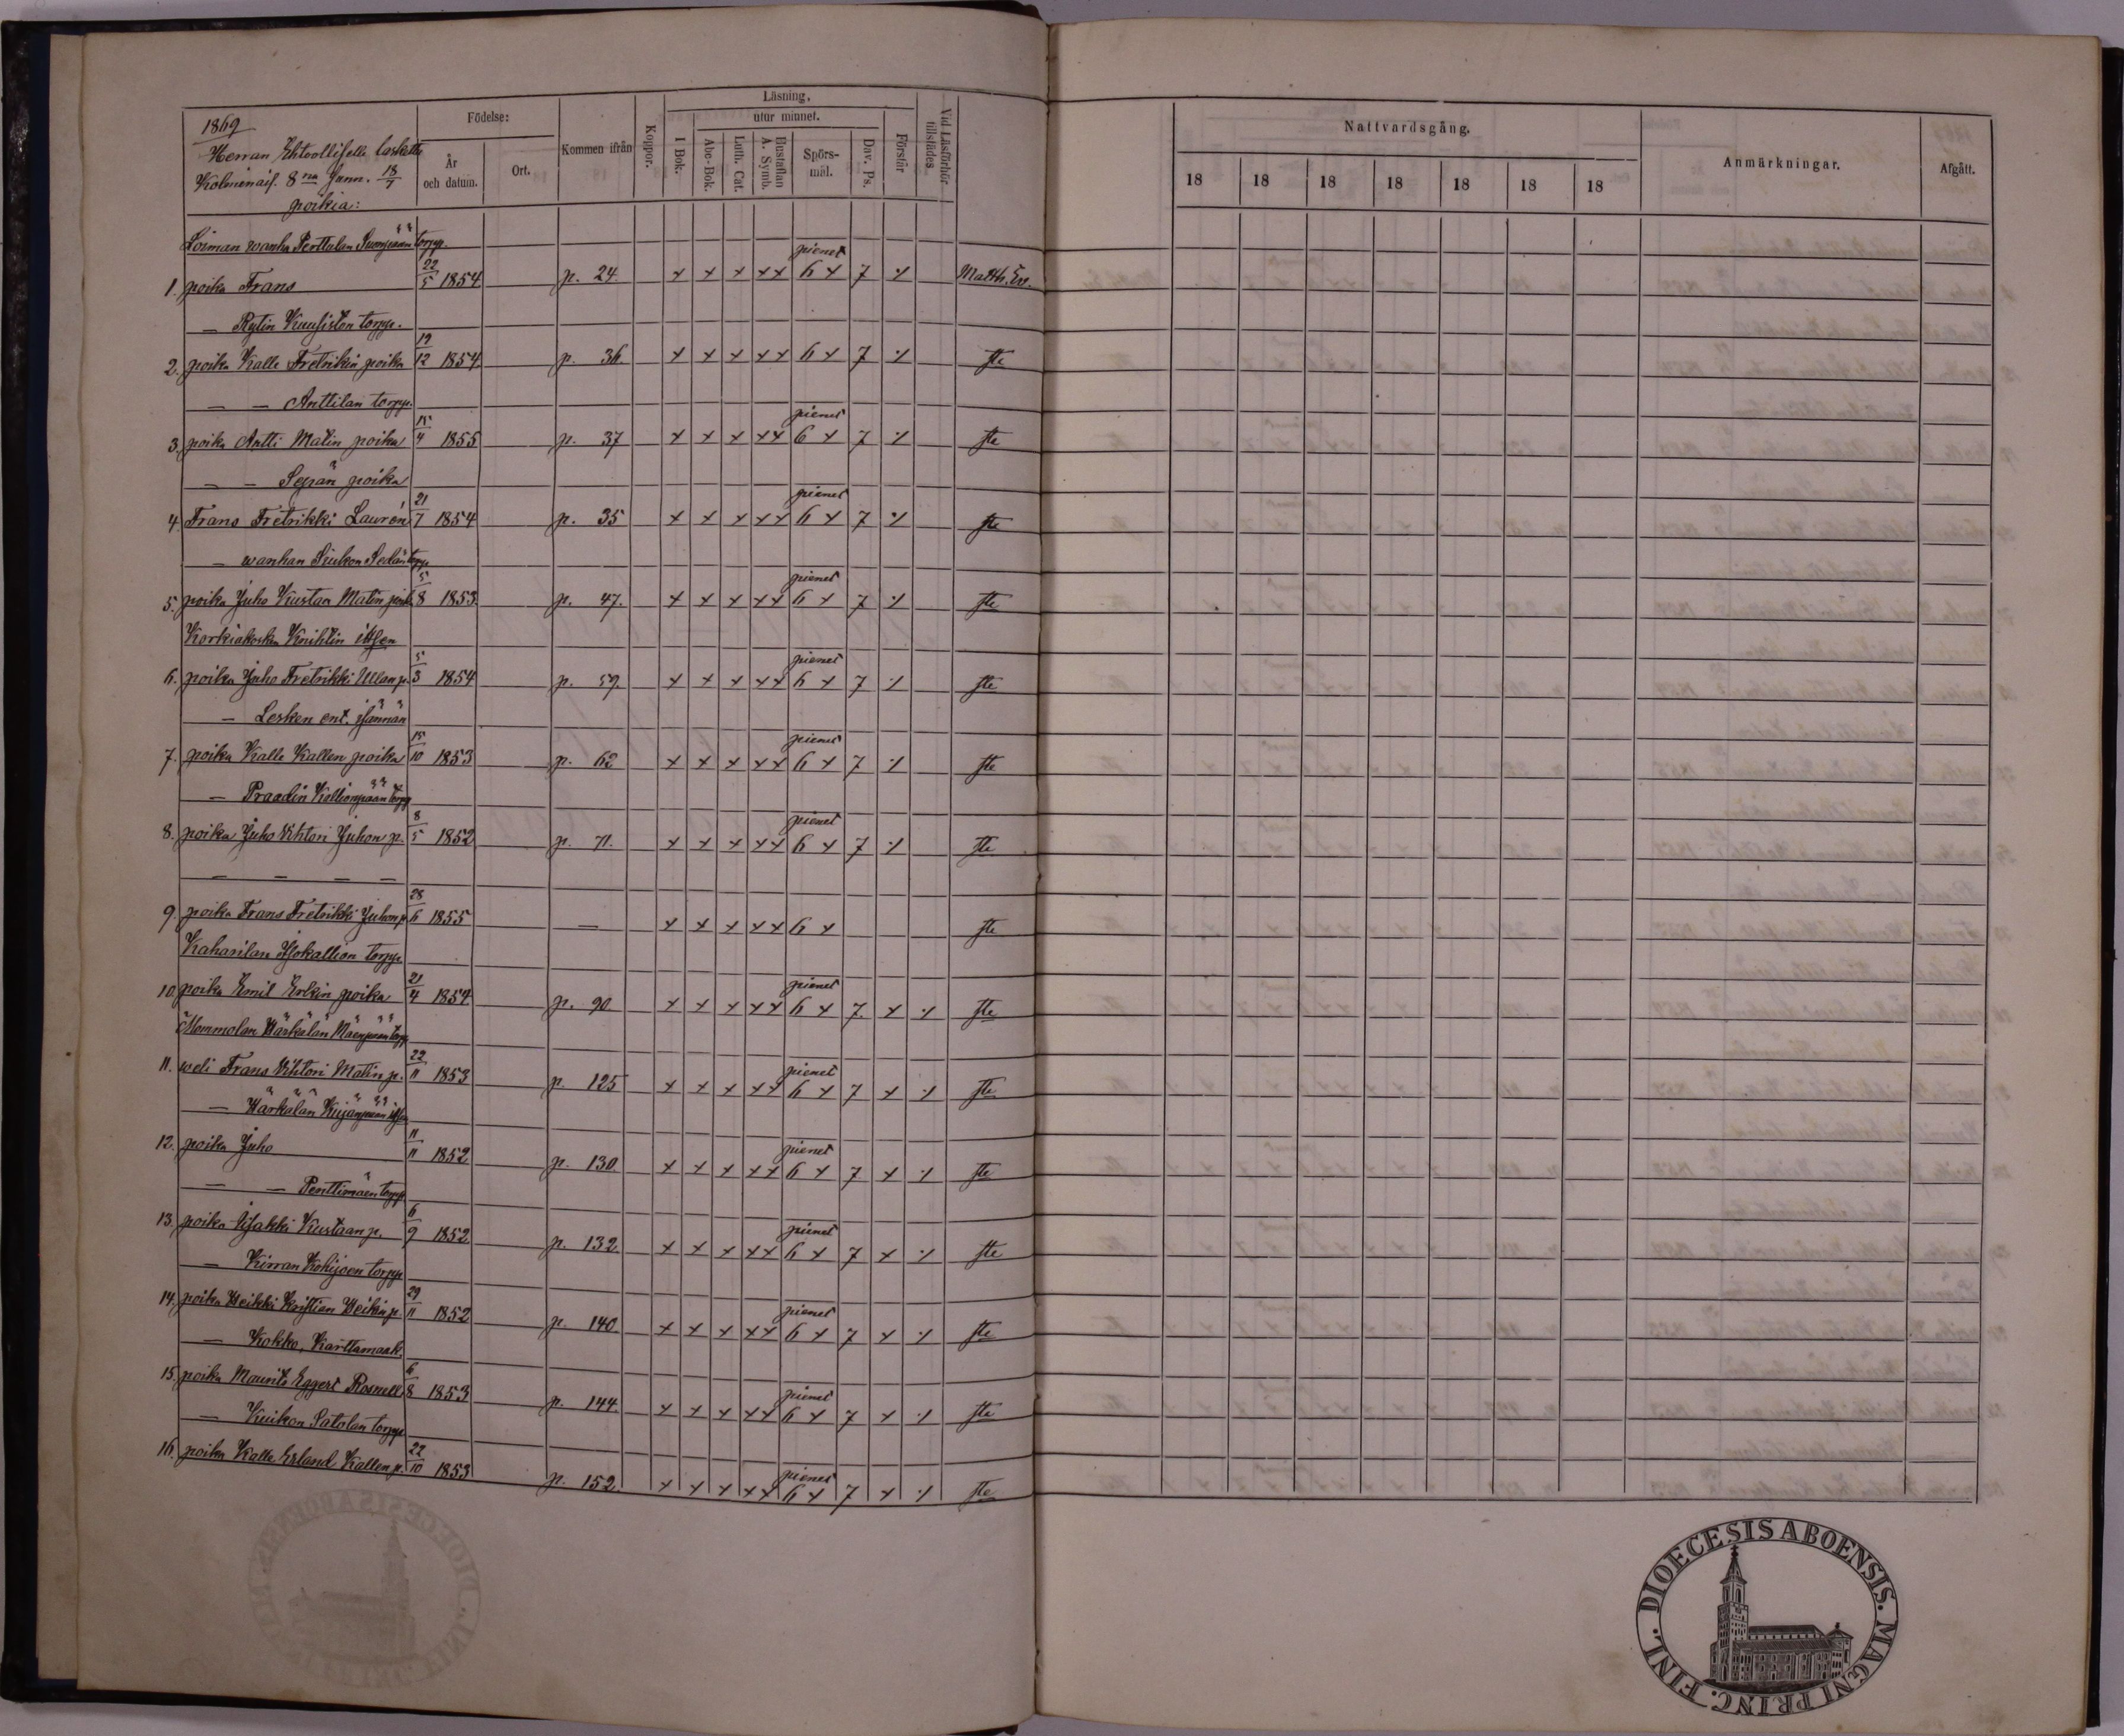 1869
Herran Ehtoolliselle laskettu
Kolmenais. 8na Sunn. 18/7
poikia:
Födelse:
År och datum.
Ort.
Kommen ifrån
Koppor.
Läsning.
I Bok.
utur minnet.
Abc-Bok.
Luth. Cat.
Hustaflan A. Symb.
Spörs-mål.
Dav. Ps.
Förstår
Vid Läsförhör tillstädes.
Nattvardsgång.
18 18 18 18 18 18 18
Anmärkningar.
Afgått.
Loiman wanha Perttulan Suonpään torpp.
1. poika Frans 22/5 1854 p. 24. x x x xx pienet 6 x 7 ٪ Matth. Ev.
— Rytin Kuusiston torpp.
2. poika Kalle Fretrikin poika 19/12 1854 p. 36. x x x xx 6 x 7 ٪ ste
— — Anttilan torpp.
3. poika Antti Matin poika 15/4 1855 p. 37 x x x xx pienet 6 x 7 ٪ ste
— — Sepän poika
4. Frans Fretrikki Laurén 21/7 1854 p. 35 x x x xx pienet 6 x 7 ٪ ste
— wanhan torpp.
5. poika Juho Kustaa Matin poik. 5/8 1853 p. 47. x x x xx pienet 6 x 7 ٪ ste
Korkiakosken Knihtin itsen
6. poika Juho Fretrikki Ullan p. 5/3 1854 p. 59. x x x xx pienet 6 x 7 ٪ ste
— Lesken ent. isännän
7. poika Kalle Kallen poika 15/10 1853 p. 62 x x x xx pienet 6 x 7 ٪ ste
— Praadin Kallionpään torpp
8. poika Juho Vihtori Juhon p. 8/5 1852 p. 71. x x x xx pienet 6 x 7 ٪ ste
— — — —
9. poika Frans Fretrikki Juhon p. 28/6 1855 — x x x xx 6 x ste
Kaharilan Isokallion torpp.
10. poika Emil Erkin poika 21/4 1854 p. 90. x x x xx pienet 6 x 7. x ٪ ste
Mommolan Härkälän Mäenpään torpp
11. weli Frans Vihtori Matin p. 22/11 1853 p. 125 x x x xx pienet 6 x 7 x ٪ ste
— Härkälän Kujanpään itsen
12. poika Juho 11/11 1852 p. 130 x x x xx pienet 6 x 7 x ٪ ste
— — Penttimäen torpp
13. poika Iisakki Kustaan p. 6/9 1852 p. 132. x x x xx pienet 6 x 7 x ٪ ste
— Kirran Kohijoen torpp
14. poika Heikki Kristian Heikin p. 29/11 1852 p. 140 x x x xx pienet 6 x 7 x ٪ ste
— Kokko, Karttamaak.
15. poika Maurits Eggert Rosnell 6/8 1853 p. 144. x x x xx pienet 6 x 7 x ٪ ste
— Kuikon Satolan torpp
16. poika Kalle Erland Kallen p. 22/10 1853 p. 152. x x x xx pienet 6 x 7 x ٪ ste
DIOECESIS ABOENSIS. MAGNI PRINC. FINL.